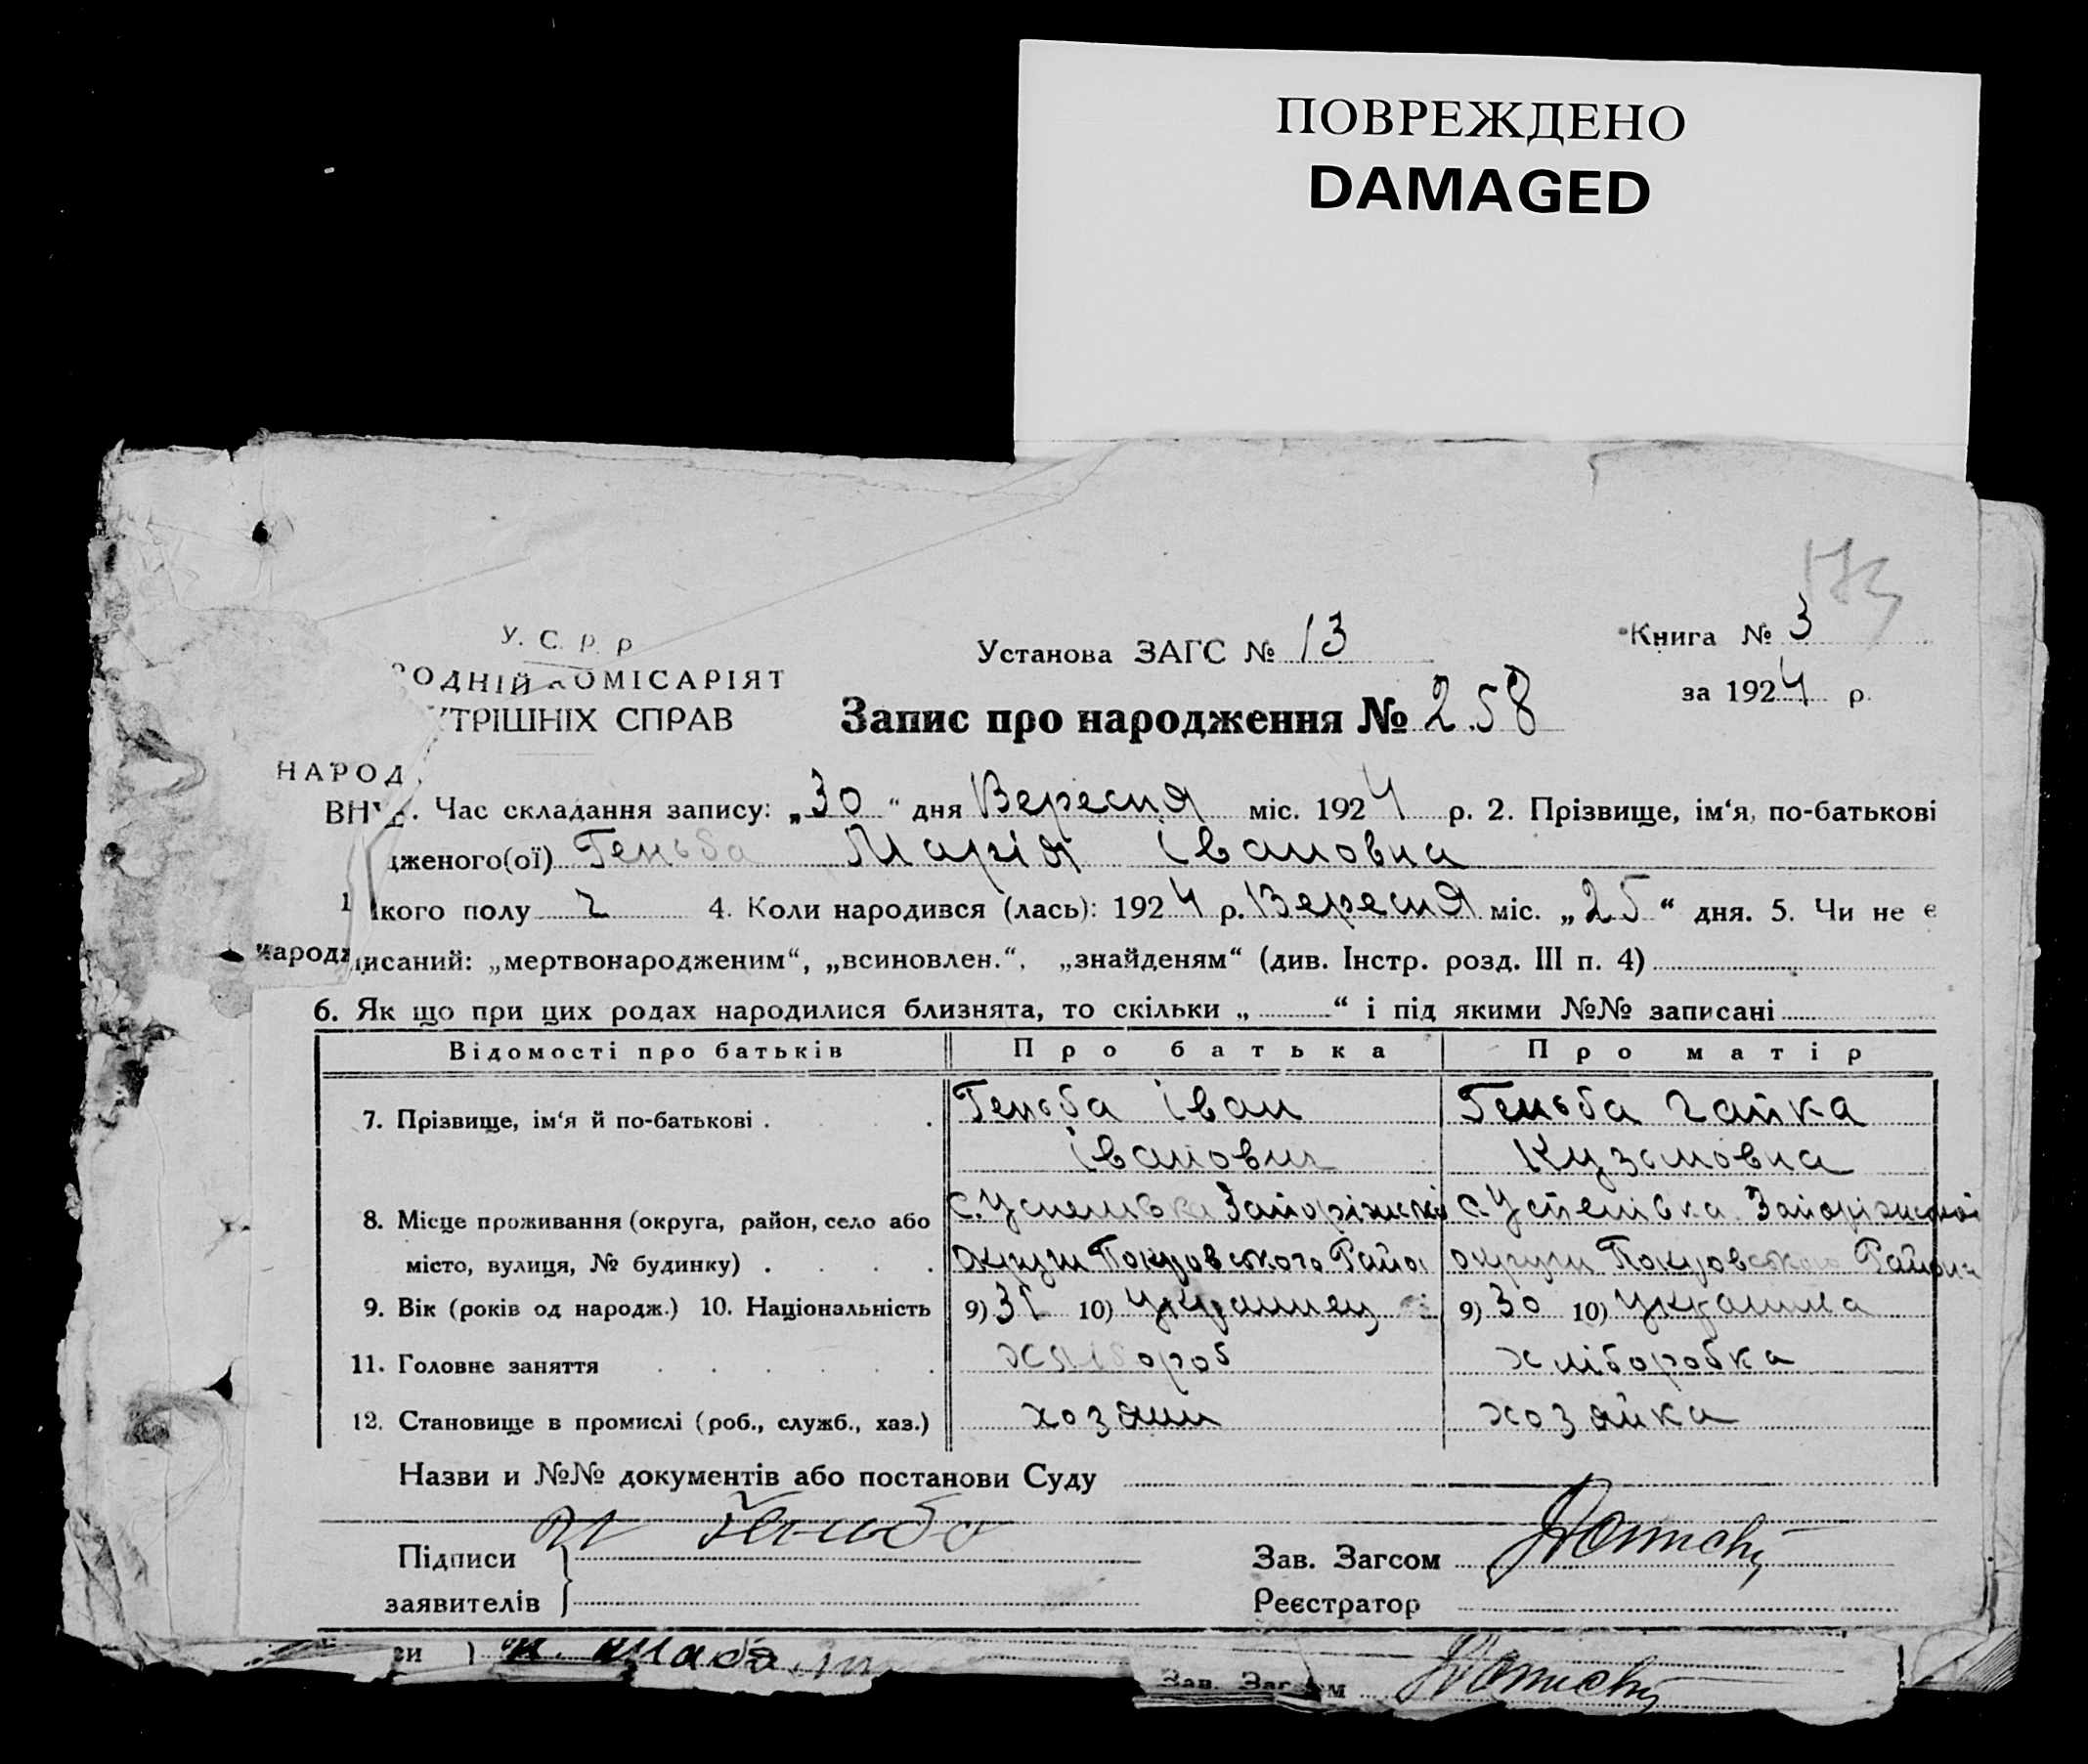 ПОВРЕЖДЕНО
DAMAGED
У. С. Р. Р
РОДНІЙ КОМІСАРІЯТ
УТРІШНІХ СПРАВ
Установа ЗАГС № 13
Книга № 3
за 1924 р.
Запис про народження № 258
НАРОД
ВНУ
Час складання запису: „30“ дня Вересня міс. 1924 р. 2. Прізвище, ім‘я, по-батькові
дженого(ої) Геньба Марія Івановна
1
кого полу ч 4. Коли народився (лась): 1924 р. Вересня міс. „25“ дня. 5. Чи не є
народж
писаний: „мертвонародженим“, „всиновлен.“, „знайденям“ (див. Інстр. розд. III п. 4)
6. Як що при цих родах народилися близнята, то скільки „ “ і під якими №№ записані
Відомості про батьків Про батька Про матір
7. Прізвище, ім‘я й по-батькові . . . Геньба Іван Геньба Гапка
Іванович Кузьмовна
8. Місце проживання (округа, район, село або с. Успенівка Запоріжські с. Успенівка Запоріжської
місто, вулиця, № будинку) . . . . округи Покровського Райо округи Покровського Району
9. Вік (років од народж.) 10. Національність 9) 31 10) Українец 9) 30 10) Українка
11. Головне заняття . . . . . . хлібороб хліборобка
12. Становище в промислі (роб., служб., хаз.) хозяин хозяйка
Назви и №№ документів або постанови Суду
Підписи
заявителів
Зав. Загсом
Реєстратор
си
Зав. Загсом